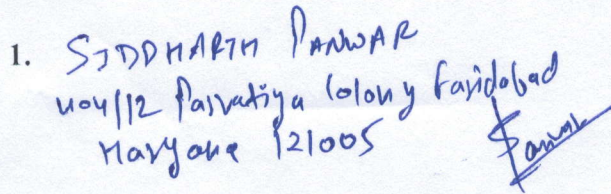 1. SIDDHARTH PANWAR
404/12 Parvatiya Colony Faridabad
Haryana 121005
Panwar